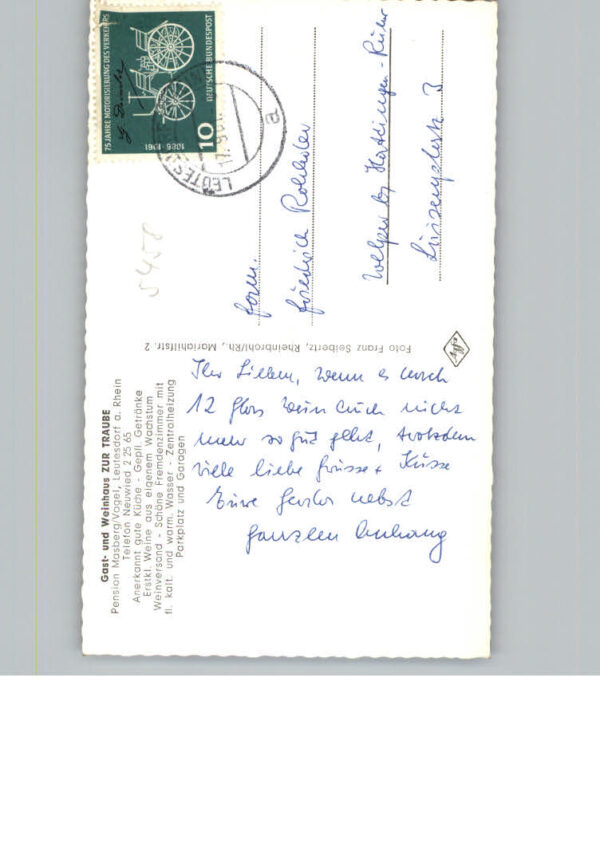 Gast- und Weinhaus ZUR TRAUBE
Pension Masberg/Vogel, Leutesdorf a. Rhein
Telefon Neuwied 2 25 65
Anerkannt gute Küche - Gepfl. Getränke
Erstkl. Weine aus eigenem Wachstum
Weinversand - Schöne Fremdenzimmer mit
fl. kalt. und warm. Wasser - Zentralheizung
Parkplatz und Garagen
Ihr Lieben, wenn es nach
12 Glas Wein auch nicht
mehr so gut geht, trotzdem
viele liebe Grüsse + Küsse
Eure nebst
ganzen Anhang
Foto Franz Seibertz, Rheinbrohl/Rh., Mariahilfstr. 2
Agfa
Fam.
Friedrich
Welper b/ Hattingen-Ruhr
3
75 JAHRE MOTORISIERUNG DES VERKEHRS
G Daimler
1886-1961
10
DEUTSCHE BUNDESPOST
LEUTESD
a
5458